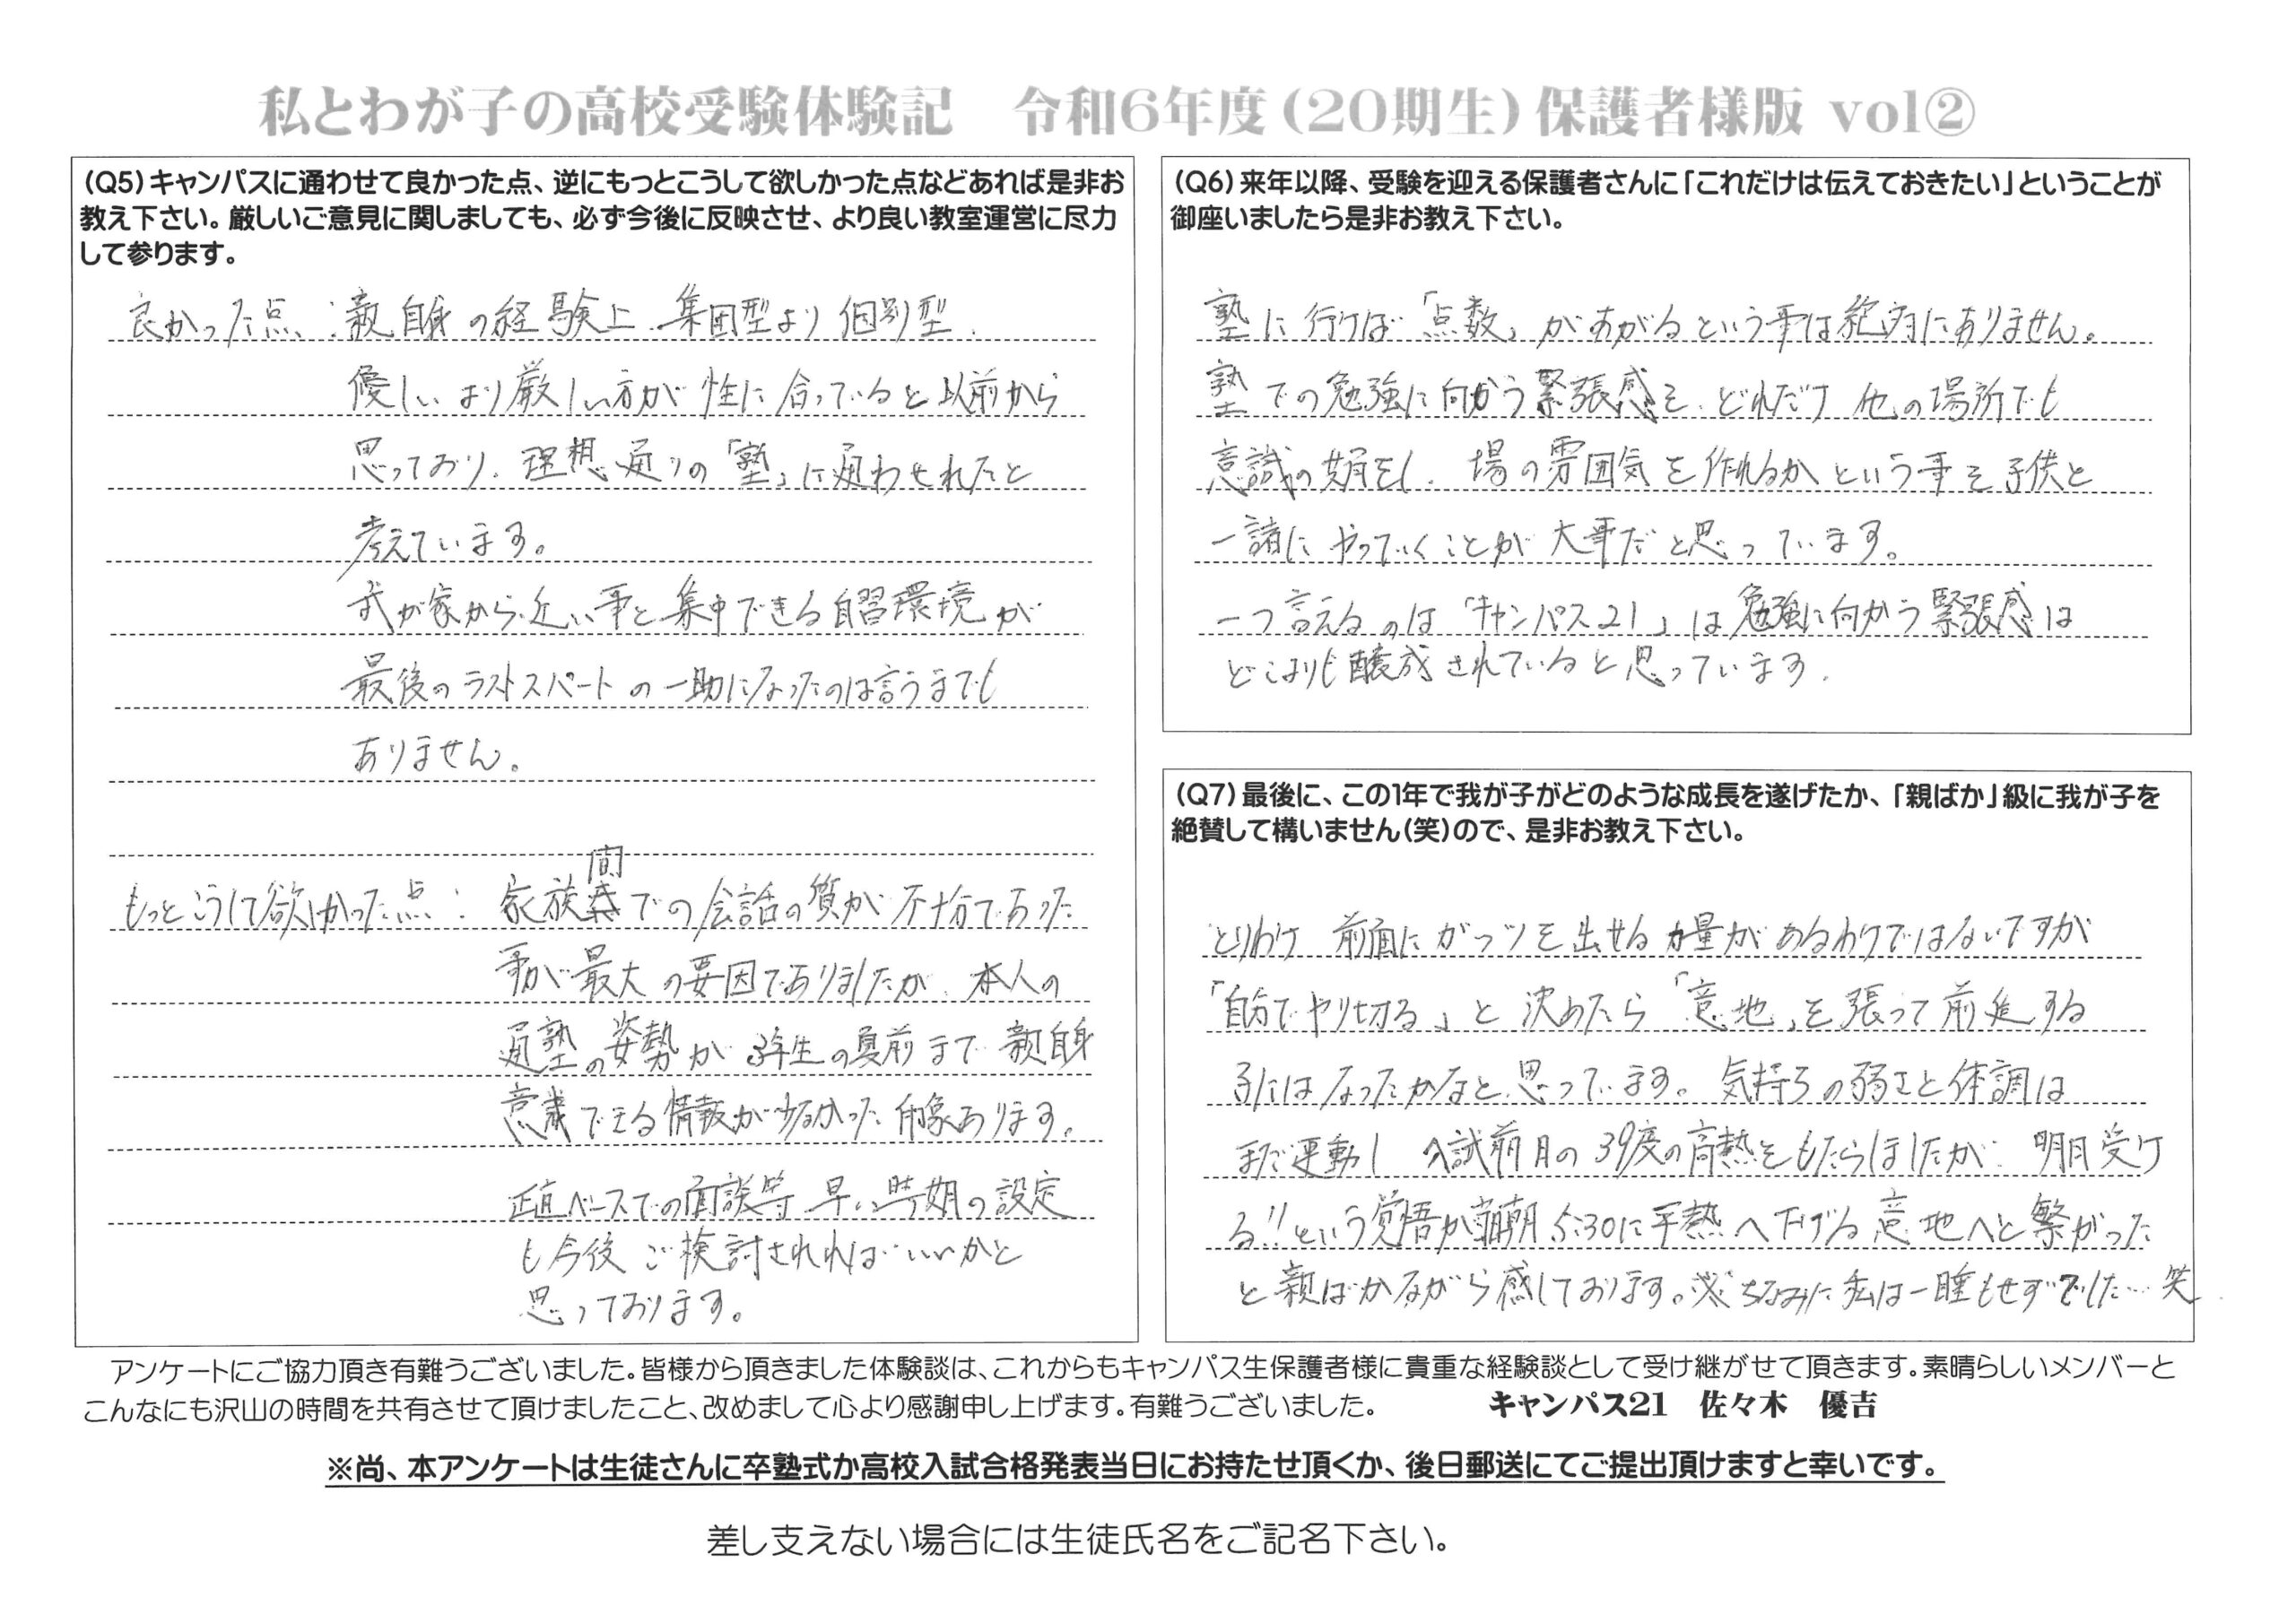 私とわが子の高校受験体験記　令和6年度（20期生）保護者様版 vol②
（Q5）キャンパスに通わせて良かった点、逆にもっとこうして欲しかった点などあれば是非お
教え下さい。厳しいご意見に関しましても、必ず今後に反映させ、より良い教室運営に尽力
して参ります。
良かった点：親自身の経験上、集団型より個別型、
優しいより厳しい方が性に合っていると以前から
思っており、理想通りの「塾」に通わせれたと
考えています。
我が家から近い事と集中できる自習環境が
最後のラストスパートの一助になったのは言うまでも
ありません。
もっとこうして欲しかった点：家族間での会話の質が不十分であった
事が最大の要因でありましたが、本人の
通塾の姿勢が3年生の夏前まで親自身
意識できる情報が少なかった印象あります。
正直ベースでの面談等早い時期の設定
も今後ご検討されればいいかと
思っております。
（Q6）来年以降、受験を迎える保護者さんに「これだけは伝えておきたい」ということが
御座いましたら是非お教え下さい。
塾に行けば「点数」があがるという事は絶対にありません。
塾での勉強に向かう緊張感を、どれだけ他の場所でも
意識の をし、場の雰囲気を作れるかという事を子供と
一諸にやっていくことが大事だと思っています。
一つ言えるのは「キャンパス21」は勉強に向かう緊張感は
どこよりも醸成されていると思っています。
（Q7）最後に、この1年で我が子がどのような成長を遂げたか、「親ばか」級に我が子を
絶賛して構いません（笑）ので、是非お教え下さい。
とりわけ 前面にガッツを出せる力量があるわけではないですが
「自分でやり切る」と決めたら「意地」を張って前進する
子にはなったかなと思っています。気持ちの弱さと体調は
まだ運動し 入試前日の39度の高熱をもたらしましたが、明日受け
る!!という覚悟が翌朝5:30に平熱へ下げる意地へと繋がった
と親ばかながら感じております。※ちなみに私は一睡もせずでした…笑
アンケートにご協力頂き有難うございました。皆様から頂きました体験談は、これからもキャンパス生保護者様に貴重な経験談として受け継がせて頂きます。素晴らしいメンバーと
こんなにも沢山の時間を共有させて頂けましたこと、改めまして心より感謝申し上げます。有難うございました。　キャンパス21　佐々木　優吉
※尚、本アンケートは生徒さんに卒塾式か高校入試合格発表当日にお持たせ頂くか、後日郵送にてご提出頂けますと幸いです。
差し支えない場合には生徒氏名をご記名下さい。